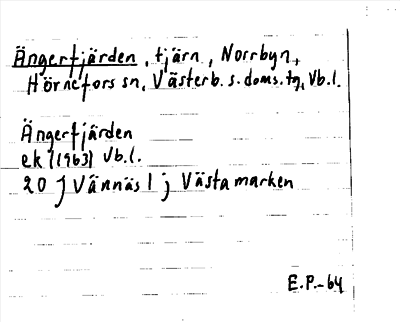 Ängerfjärden, tjärn, Norrbyn,
Hörnefors sn, Västerb. s. doms. tg, Vb. l.
Ängerfjärden
ek (1963) Vb. l.
20 J Vännäs l j Västa marken
E.P.-64